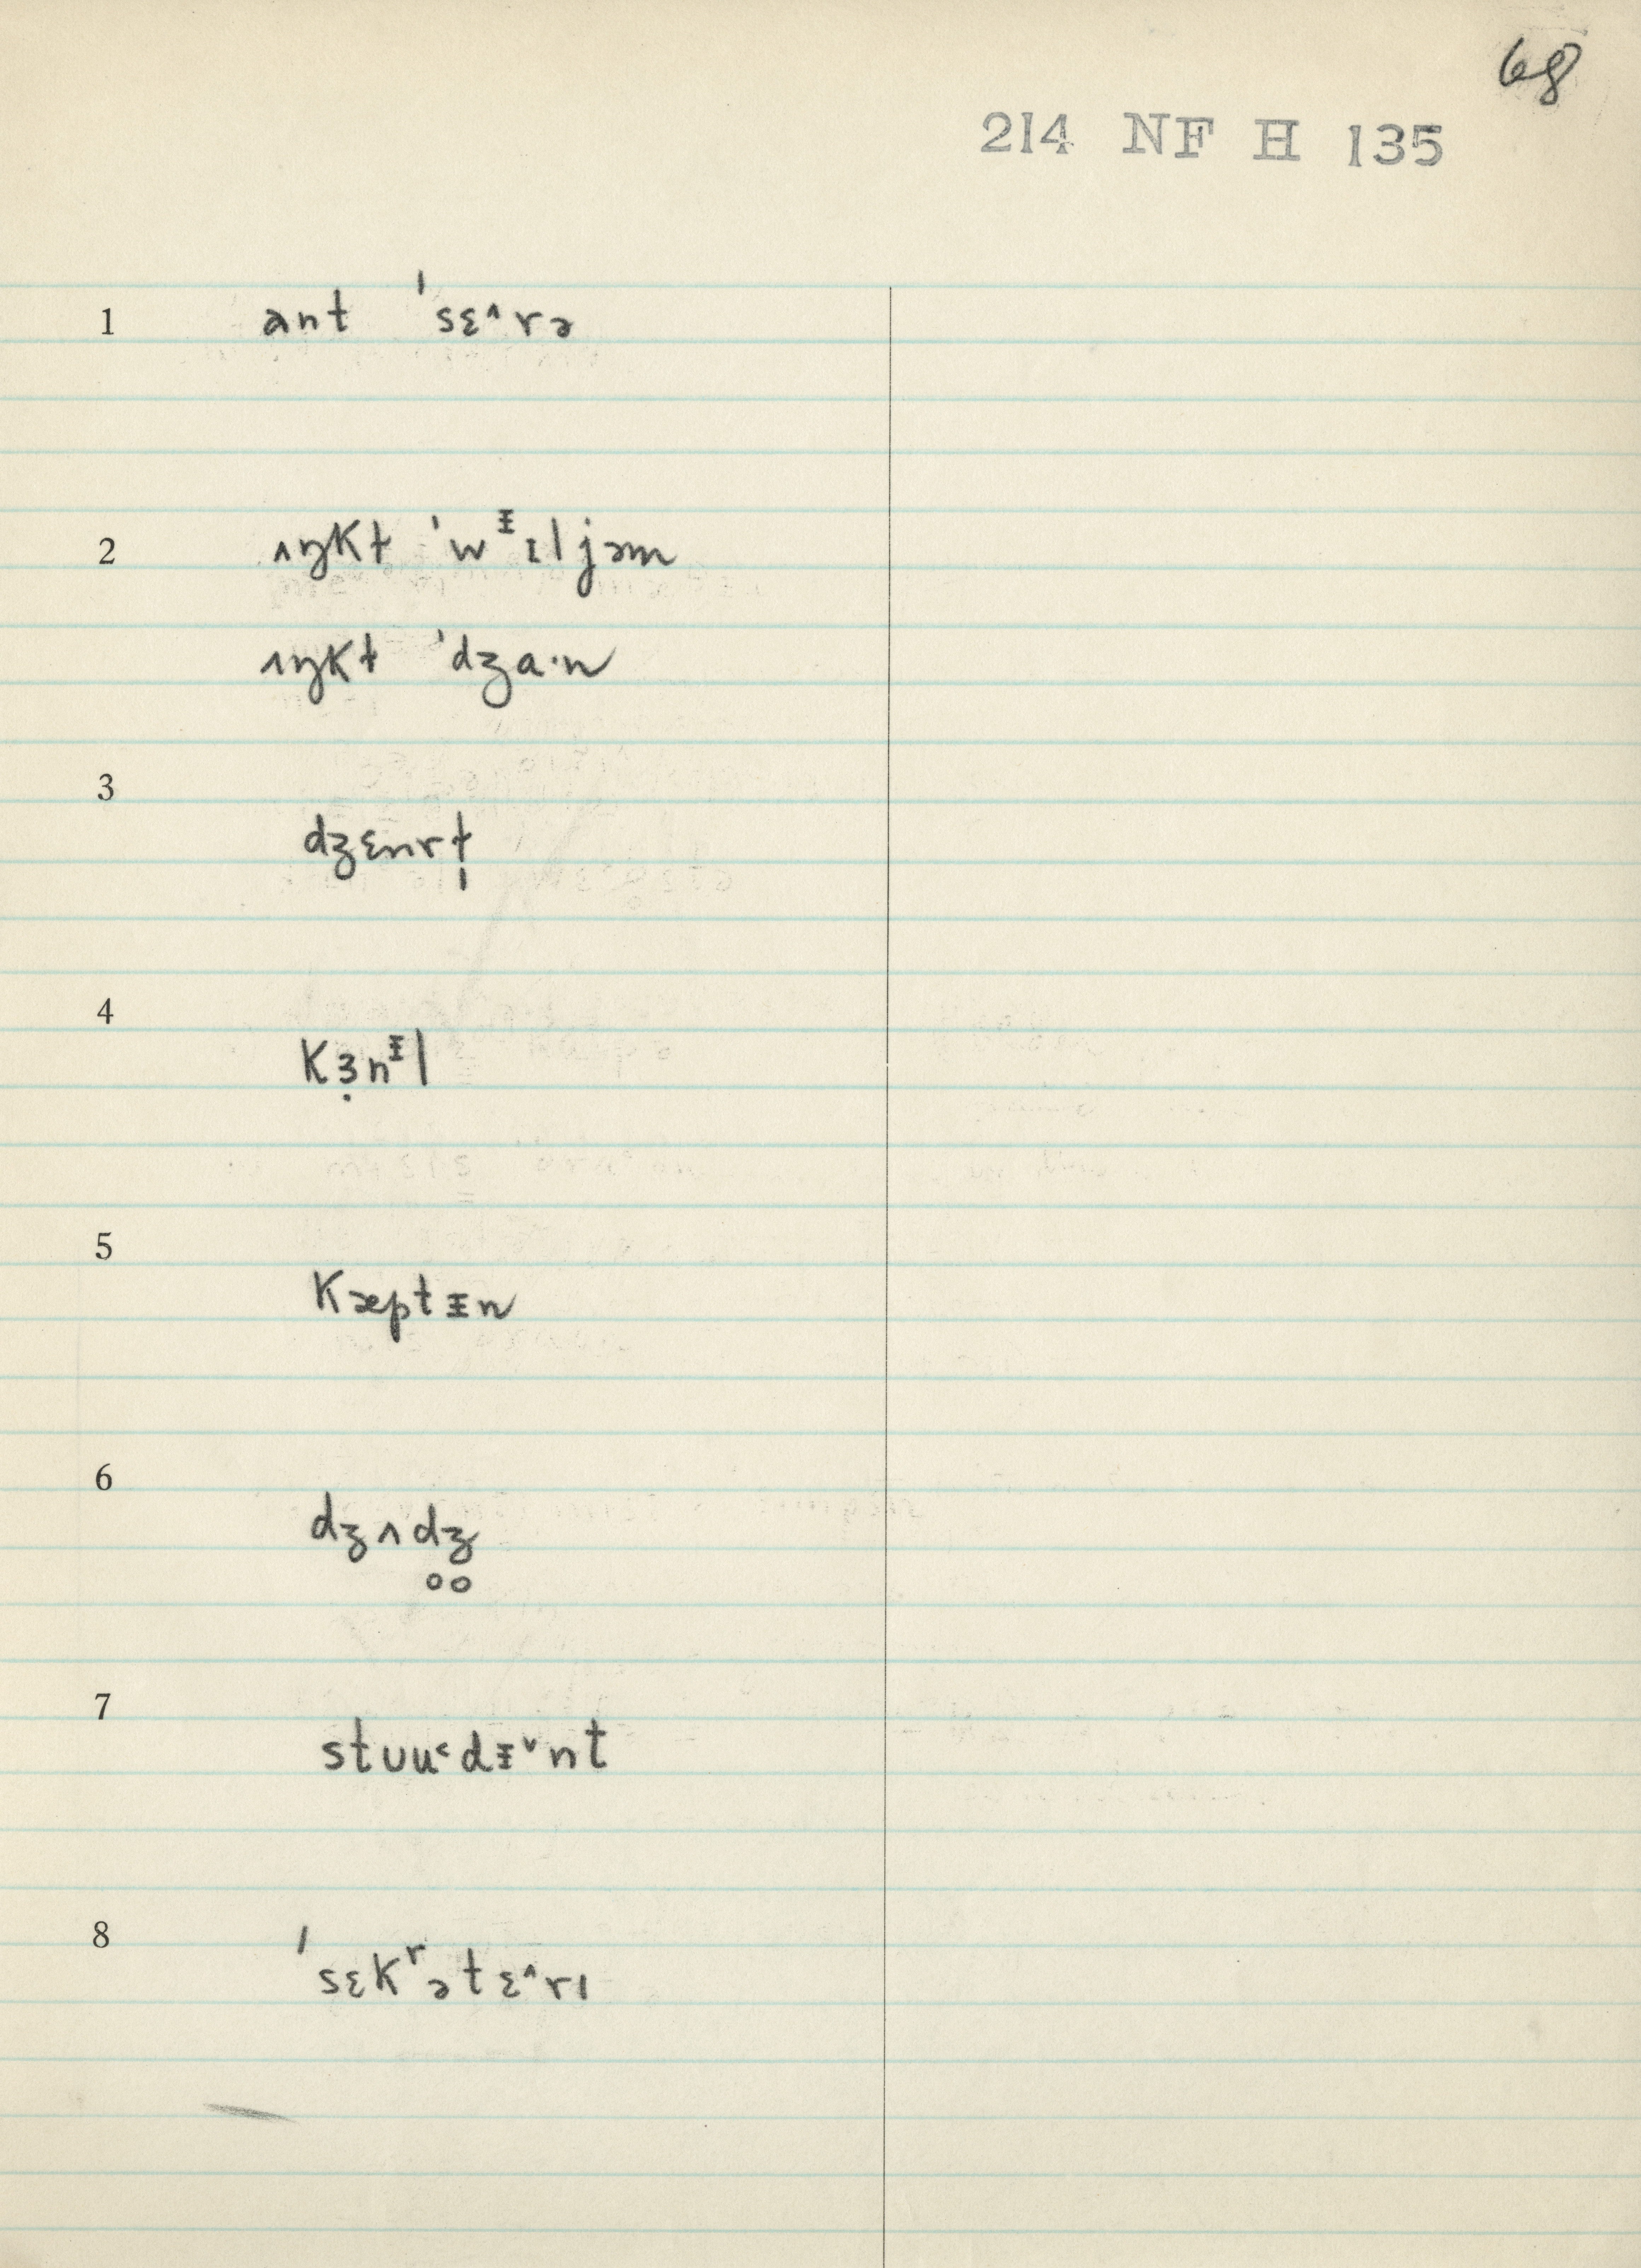 68
214 NF H 135
1 ant ˈsɛ˄rə
2 ʌŋkt ˈwᵻɪljəm
ʌŋkt ˈdʒa·n
3 dʒɛnrt̩
4 kɜ̣nᵻl
5 kæptᵻn
6 dʒʌd̥ʒ̊
7 stʊu˂dᵻ˅nt
8 ˈsɛkʳətɛ˄rɪ